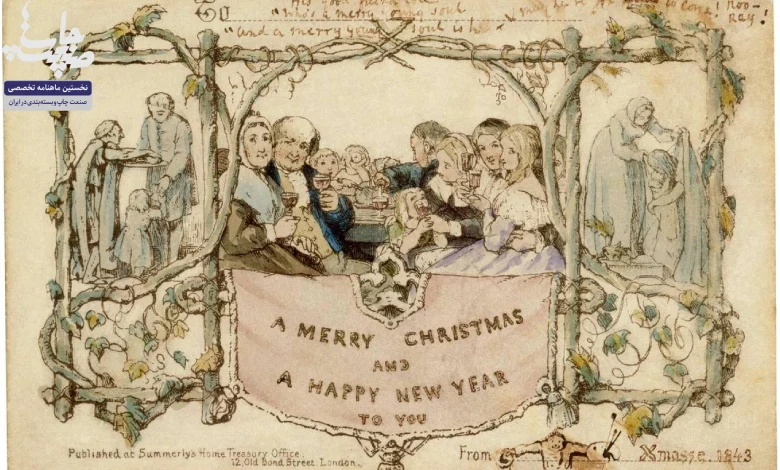 نخستین ماهنامه تخصصی
صنعت چاپ و بسته‌بندی در ایران
"who's a merry young soul
to come! Hoo-
ray!
"and a merry young soul is he"
A MERRY CHRISTMAS
AND
A HAPPY NEW YEAR
TO YOU
Published at Summerly's Home Treasury Office.
12, Old Bond Street, London.
From
Xmasse. 1843